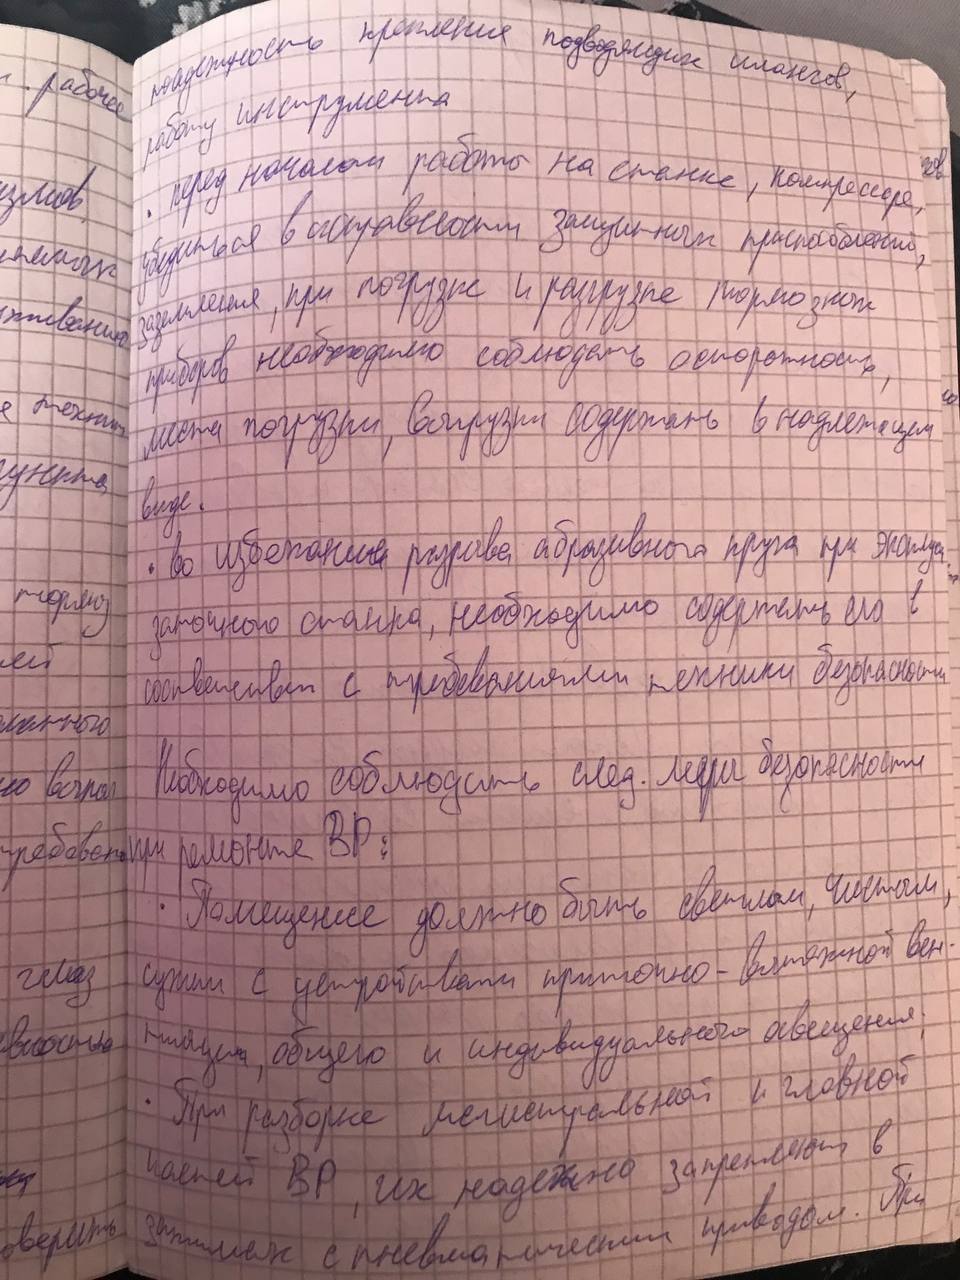 надежность крепления подводящих шлангов,
работу инструмента
• перед началом работы на станке, компрессоре,
убедиться в исправности защитных приспособлений,
заземления, при погрузке и разгрузке тормозных
приборов необходимо соблюдать осторожность,
места погрузки, выгрузки содержать в надлежащем
виде.
• во избежание разрыва абразивного круга при эксплуа.
заточного станка, необходимо содержать его в
соответствии с требованиями техники безопасности
Необходимо соблюдать след. меры безопасности
при ремонте ВР:
• Помещение должно быть светлым, чистым,
сухим с устройствами приточно-вытяжной вен-
тиляции, общего и индивидуального освещения;
• При разборке магистральной и главной
частей ВР, их надежно закрепляют в
зажимах с пневматическим приводом. При